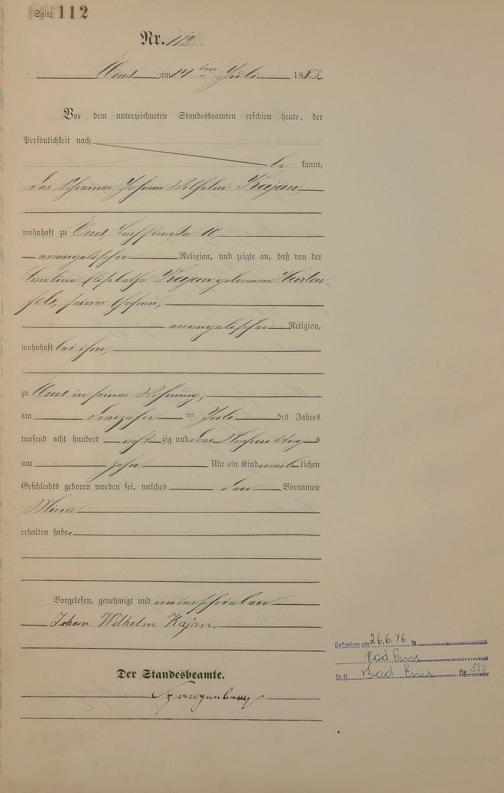 Seite 112
Nr. 112
Ems am 14 ten Juli 188
Vor dem unterzeichneten Standesbeamten erschien heute, der
Persönlichkeit nach
be kannt,
der Schreiner Johann Wilhelm Kajan
wohnhaft zu Ems, 10,
evangelischer Religion, und zeigte an, daß von der
Karoline Elisabetha Kajan geborenen
seiner Ehefrau,
evangelischer Religion,
wohnhaft bei ihm,
zu Ems in seiner Wohnung,
am dreizehn ten Juli des Jahres
tausend acht hundert acht zig und des tags
um zehn Uhr ein Kind weib lichen
Geschlechts geboren worden sei, welches den Vornamen
erhalten habe.
Vorgelesen, genehmigt und unterschrieben
Johan Wilhelm Kajan.
Der Standesbeamte.
Gestorben am 26.6.76 in
Bad Ems
St.A. Bad Ems Nr. 132